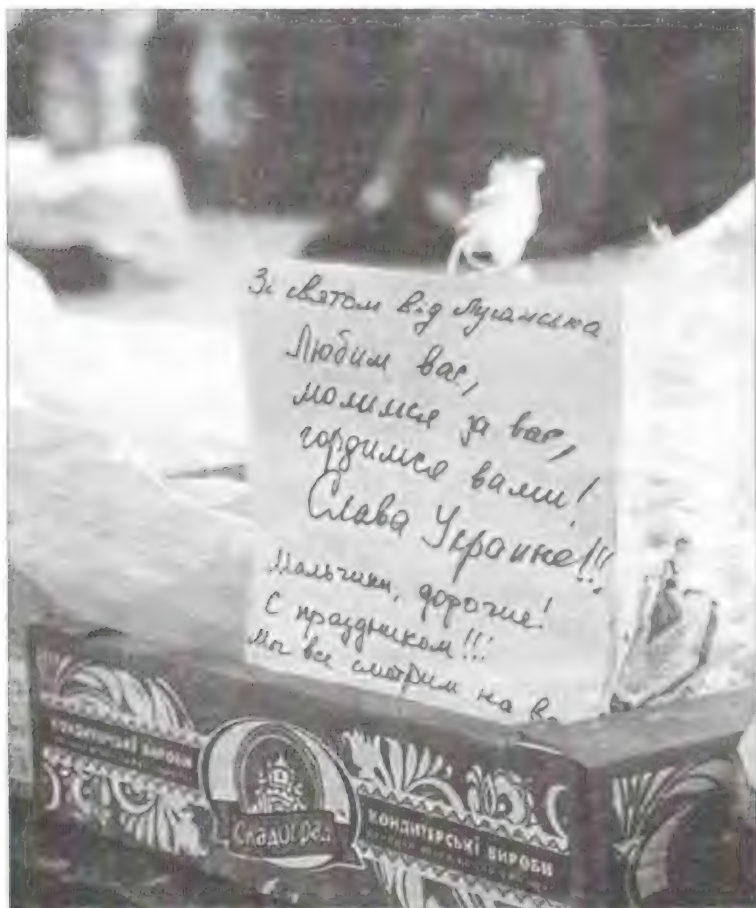 Зі святом від Луганська
Любим вас,
молимся за вас,
гордимся вами!
Слава Украине!!!
Мальчики, дорогие!
С праздником!!!
Мы все смотрим на
КОНДИТЕРСЬКІ ВИРОБИ
Сладоград
КОНДИТЕРСЬКІ ВИРОБИ